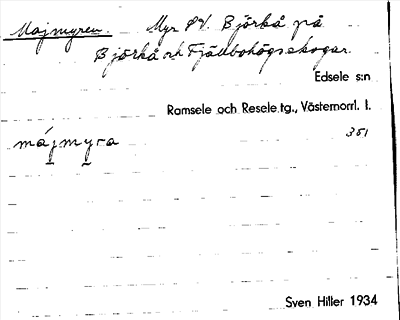 Majmyren. Myr SV. Björkå på
Björkå och Fjällbohögsskogar.
Edsele s:n
Ramsele och Resele tg., Västernorrl. l.
májmyra 351
Sven Hiller 1934